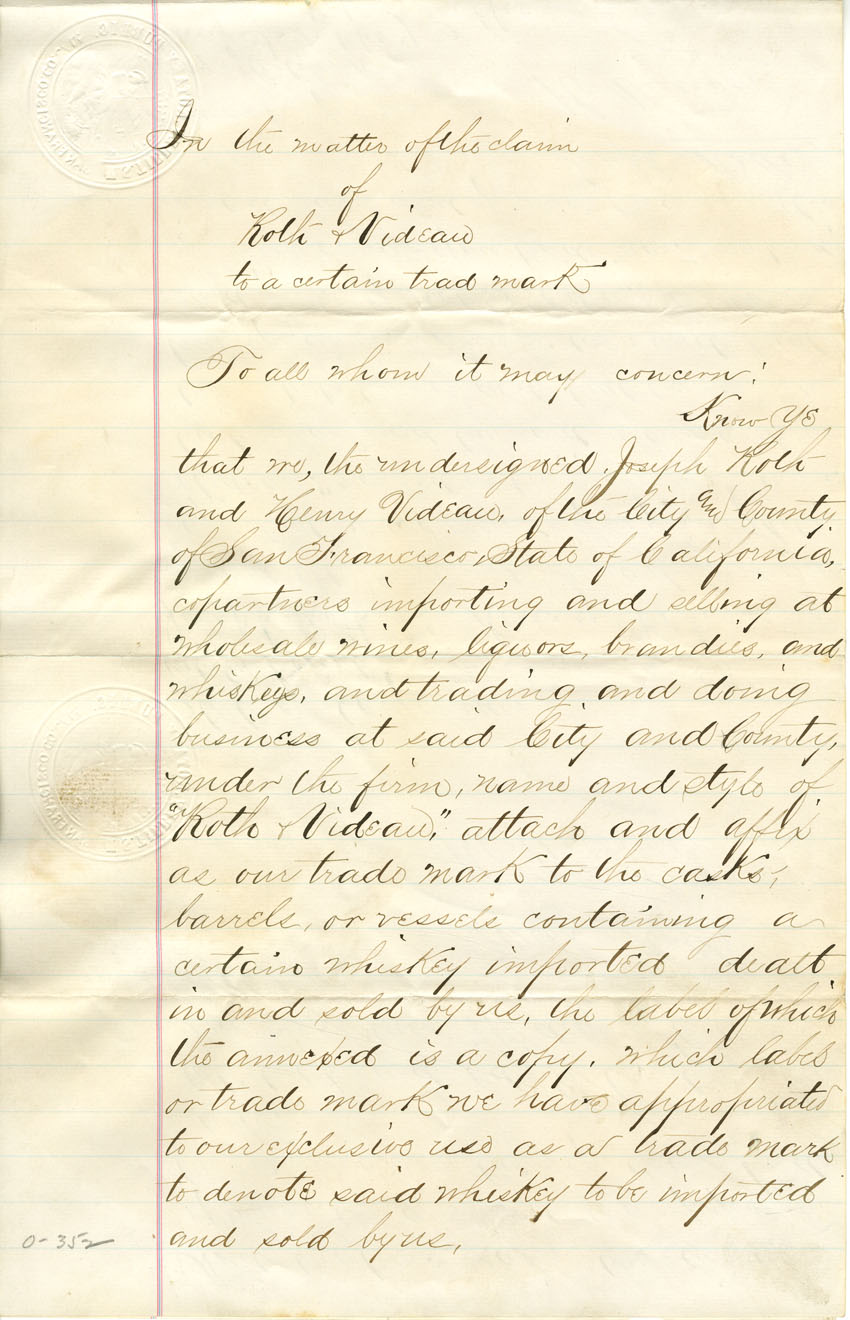 In the matter of the claim
of
Roth & Videau
to a certain trad mark
To all whom it may concern:
Know YE
that we, the undersigned Joseph Roth
and Henry Videau, of the City and County
of San Francisco, State of California,
copartners importing and selling at
wholesale wines, liquors, brandies, and
whiskeys, and trading and doing
business at said City and County,
under the firm, name and style of
"Roth & Videau," attach and affix
as our trade mark to the casks,
barrels, or vessels containing a
certain whiskey imported dealt
in and sold by us, the label of which
the annexed is a copy. which label
or trade mark we have appropriated
to our exclusive use as a trade mark
to denote said whiskey to be imported
and sold by us.
0-352